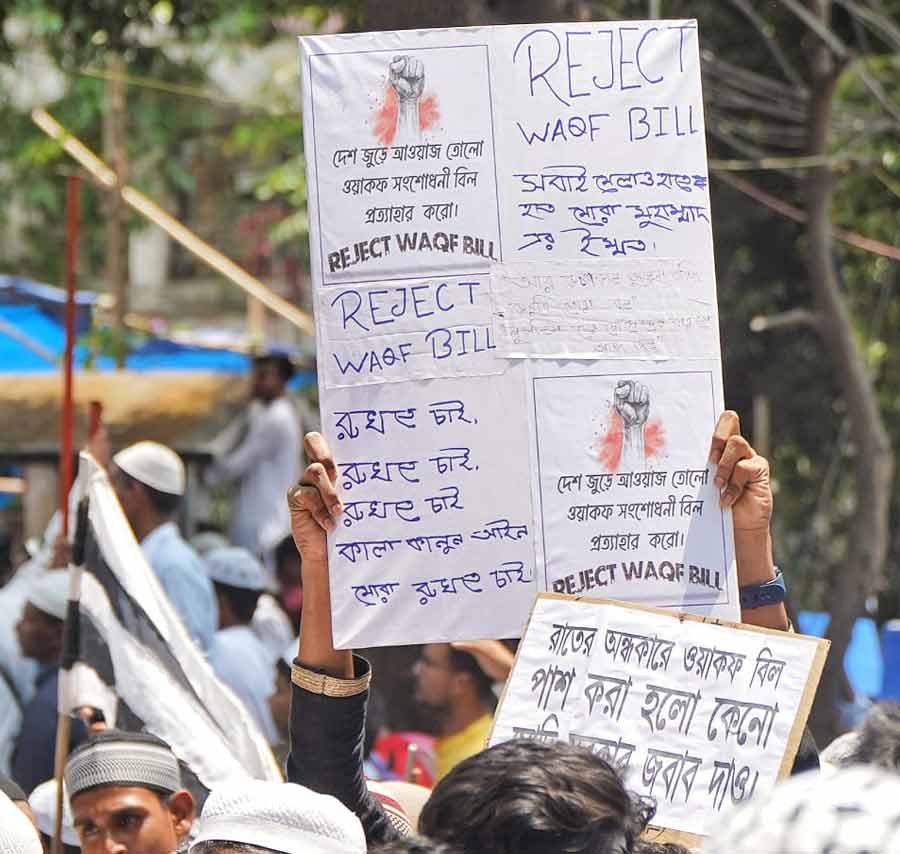 দেশ জুড়ে আওয়াজ তোলো
ওয়াকফ সংশোধনী বিল
প্রত্যাহার করো।
REJECT WAQF BILL
REJECT
WAQF BILL
সবাই
হত মোরা মুহাম্মাদ
এর ইম্মত।
REJECT
WAQF BILL
রুখতে চাই.
রুখতে চাই.
রুখতে চাই
কালা কানুন আইন
মোরা রুখতে চাই.
দেশ জুড়ে আওয়াজ তোলো
ওয়াকফ সংশোধনী বিল
প্রত্যাহার করো।
REJECT WAQF BILL
রাতের অন্ধকারে ওয়াকফ বিল
পাশ করা হলো কেনো
জবাব দাও।